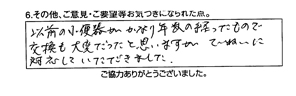 6.その他、ご意見・ご要望等お気づきになられた点。
以前の小便器がかなり年数の経ったもので
交換も大変だったと思いますが てーねいに
対応していただきました。
ご協力ありがとうございました。